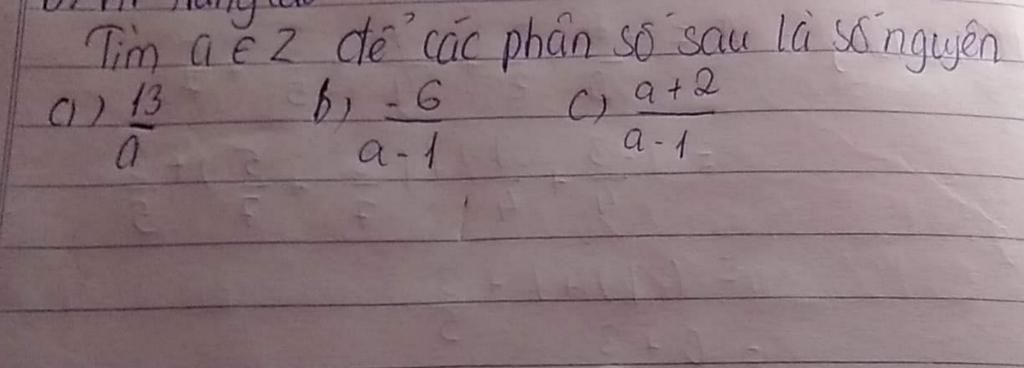 Tìm a ∈ Z để các phân số sau là số nguyên
a) 13/a b) -6/a-1 c) a+2/a-1